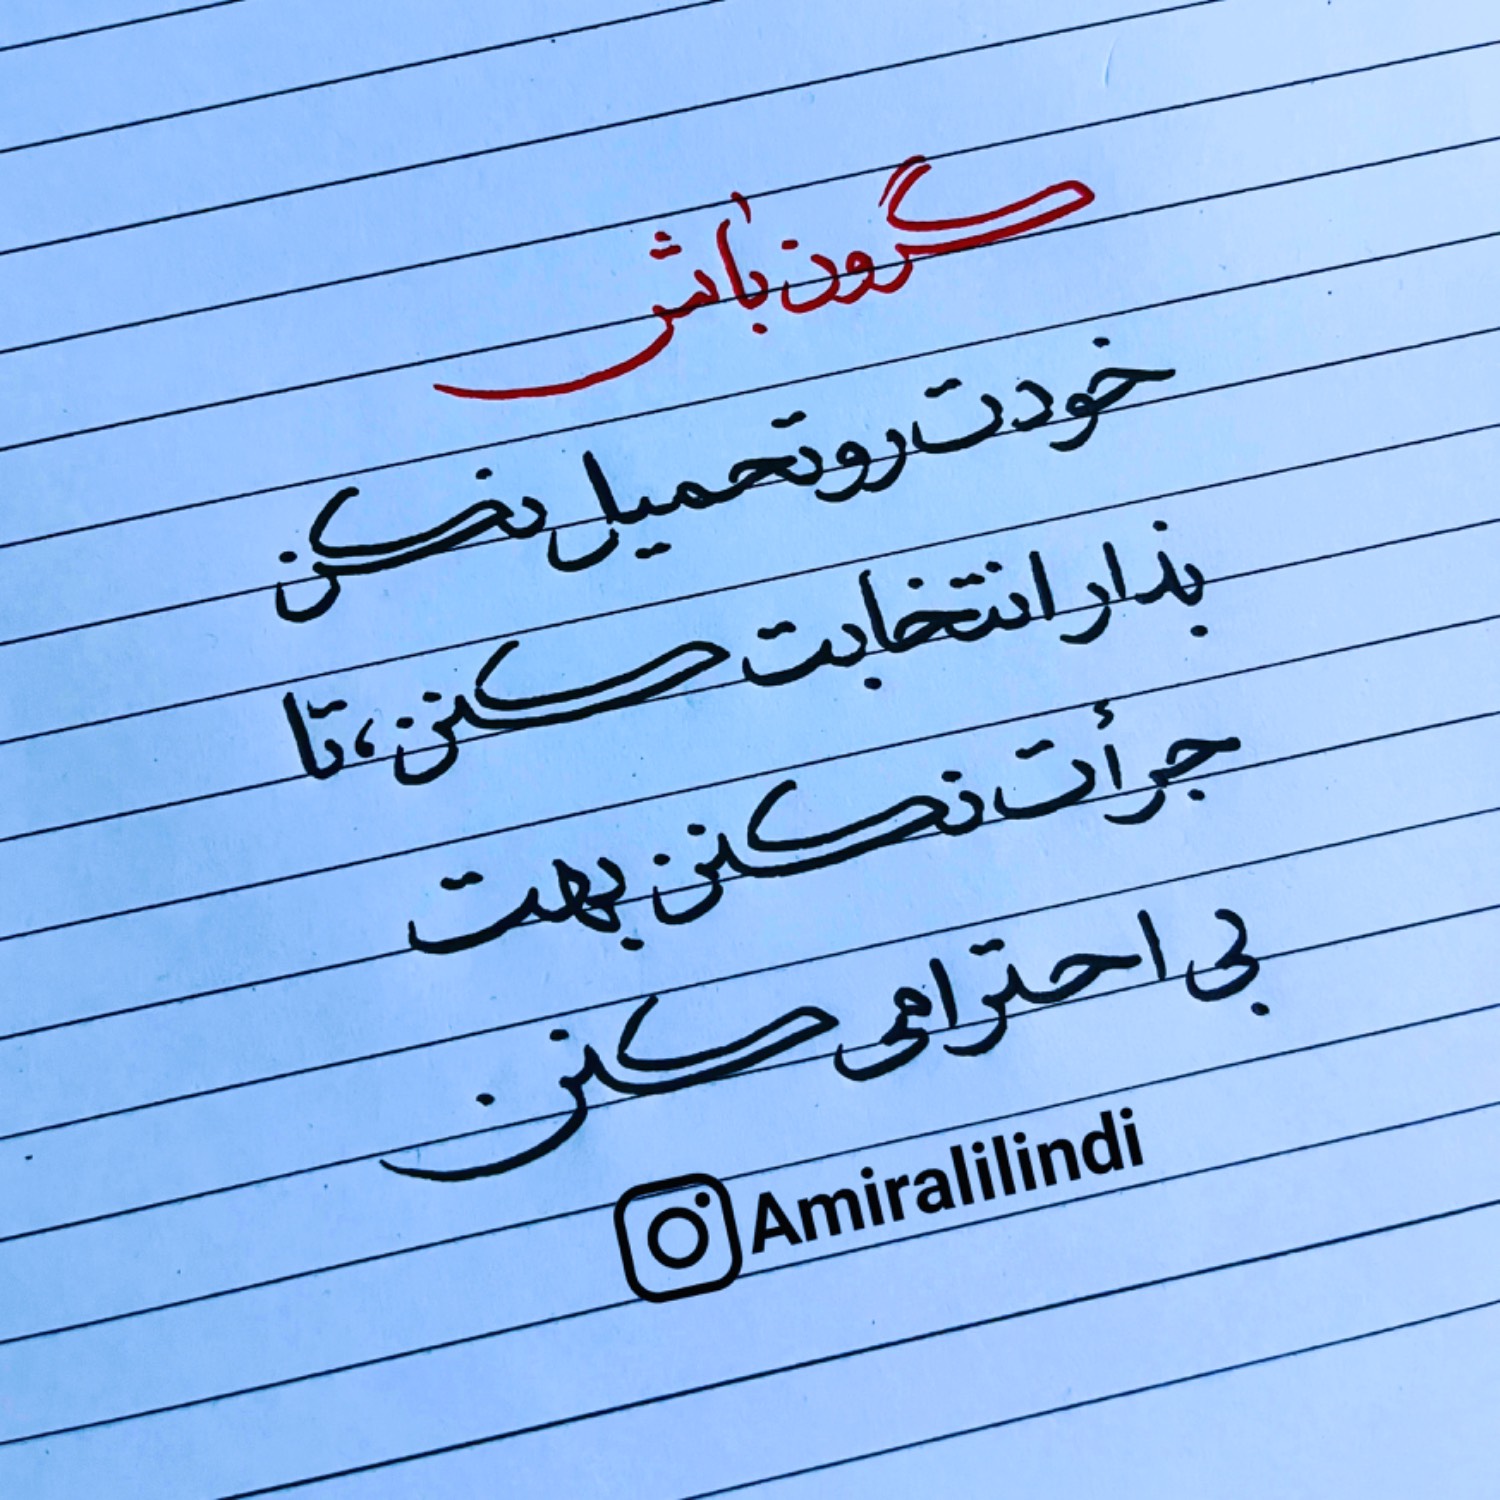 گرون باش
خودت رو تحمیل نکن
بذار انتخابت کنن، تا
جرأت نکنن بهت
بی احترامی کنن
Amiralilindi